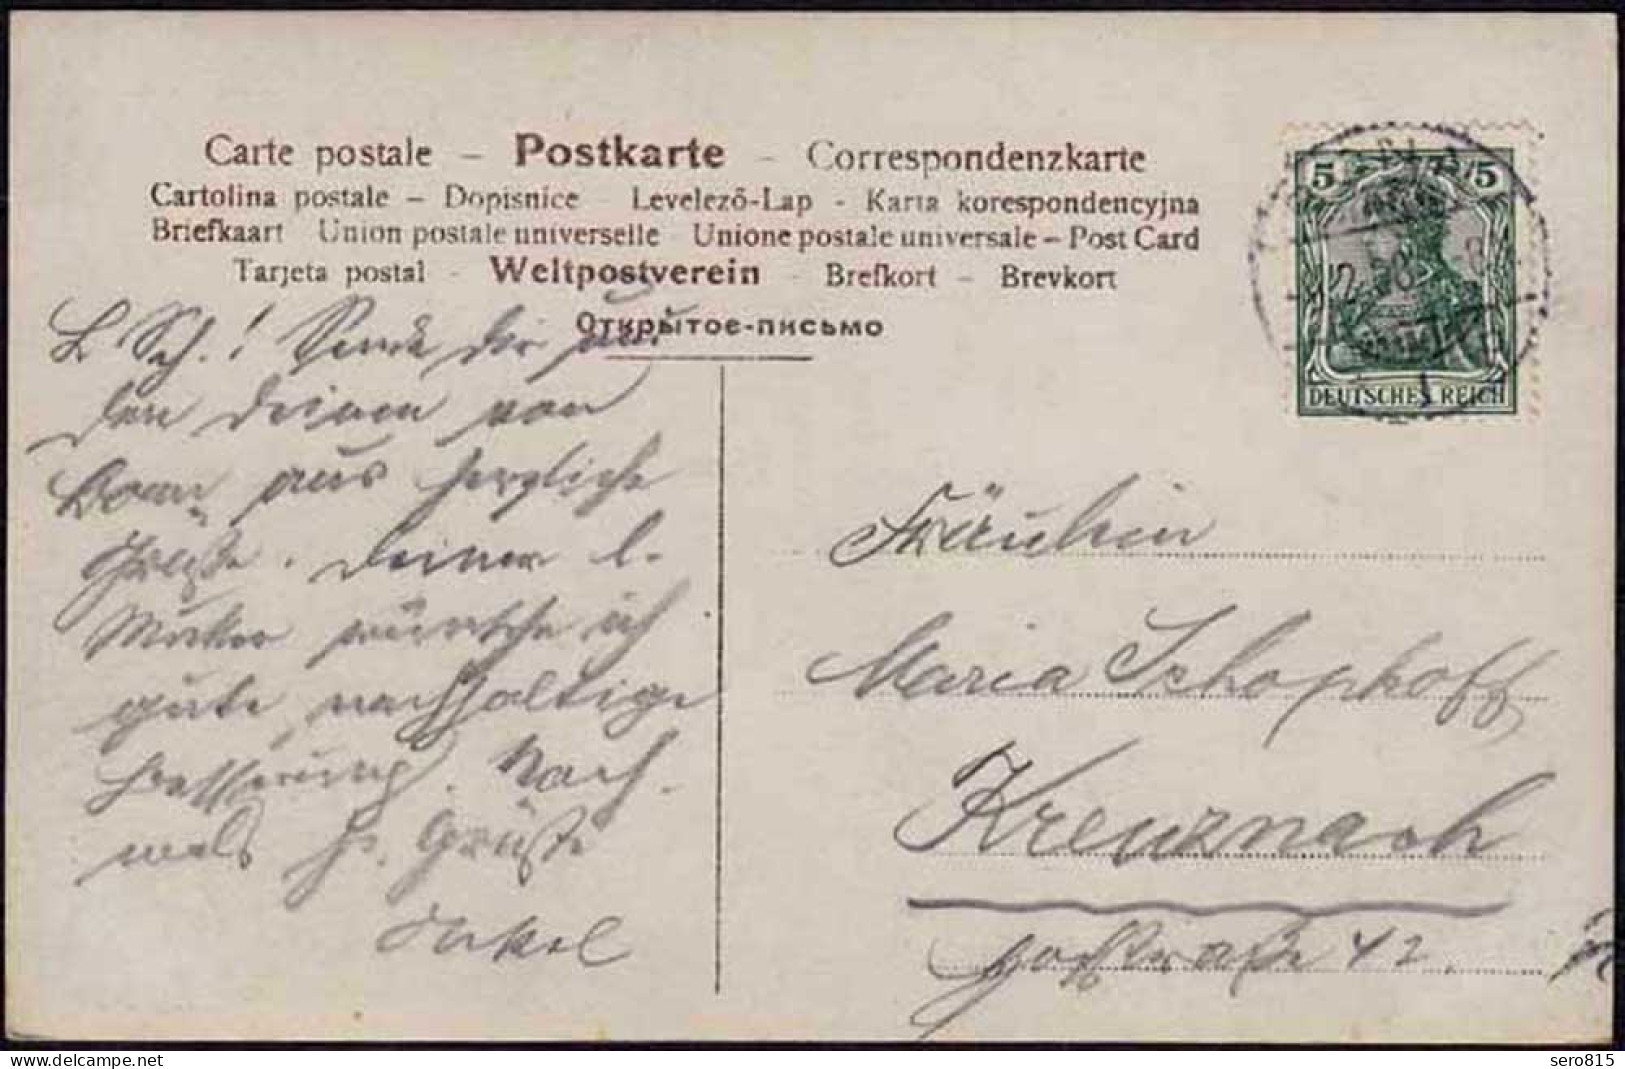 Carte postale – Postkarte – Correspondenzkarte
Cartolina postale – Dopisnice Levelező-Lap - Karta korespondencyjna
Briefkaart Union postale universelle Unione postale universale – Post Card
Tarjeta postal - Weltpostverein - Brefkort - Brevkort
Открытое-письмо
5 5
DEUTSCHES REICH
L Sch.! Sende dir
den Deinen von
aus herzliche
Grüße. Deiner l.
Mutter wünsche ich
gute nachhaltige
Besserung. Noch-
mals hz. Grüße
Onkel
Fräulein
Maria Schophoff
Kreuznach
Hochstraße 42.
sero815